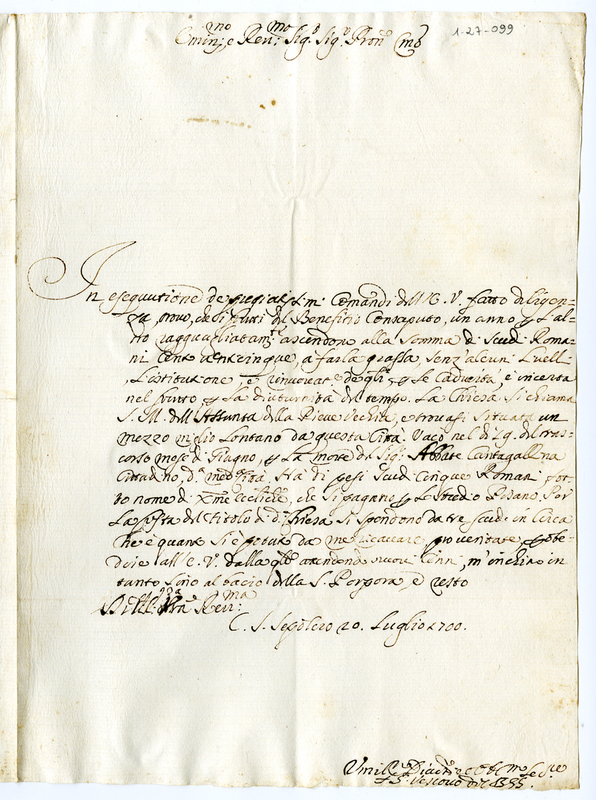 Emin:mo e Rev:mo Sig:r Sig:r Pron:
1-27-099
In esequutione de pregiat:mi Comandi dell'E. V. fatto diligen=
za, trovo, che li frutti del Benefitio Consaputo, un anno p l'al=
tro ragguagliatam:te ascendere alla Somma di Scudi Roma=
ni Cento venticinque, a farla grassa, senz'alcuni Livelli
L'Istitutione, e rinovat degli, p le Caducità, è incerta
nel punto, p la diuturnità del tempo. La Chiesa si chiama
S. M. dell'Assunta della Pieve Vecchia, e trovasi situata un
mezzo miglio lontano da questa Città. Vacò nel dì 29. del tras=
corso mese di Giugno, p la morte del Sig:r Abbate Cantagallina
Cittadino, d.a Città. Hà di pesi Scudi Cinque Romani sot=
to nome di che si pagano p lo Studio Pisano. Per
la festa del titolo di d:a Chiesa si spendono da tre scudi in circa
Che è quanto si è potuto da me ricavare, p obe=
dire all'E. V. dalla qle attendendo nuovi Cenni, m'inchino in
tanto sino al bacio della S. Porpora, e resto
Di V. E. Rev:ma
C. S. Sepolcro 20. Luglio 1700.
Umiliss
Vescovo di